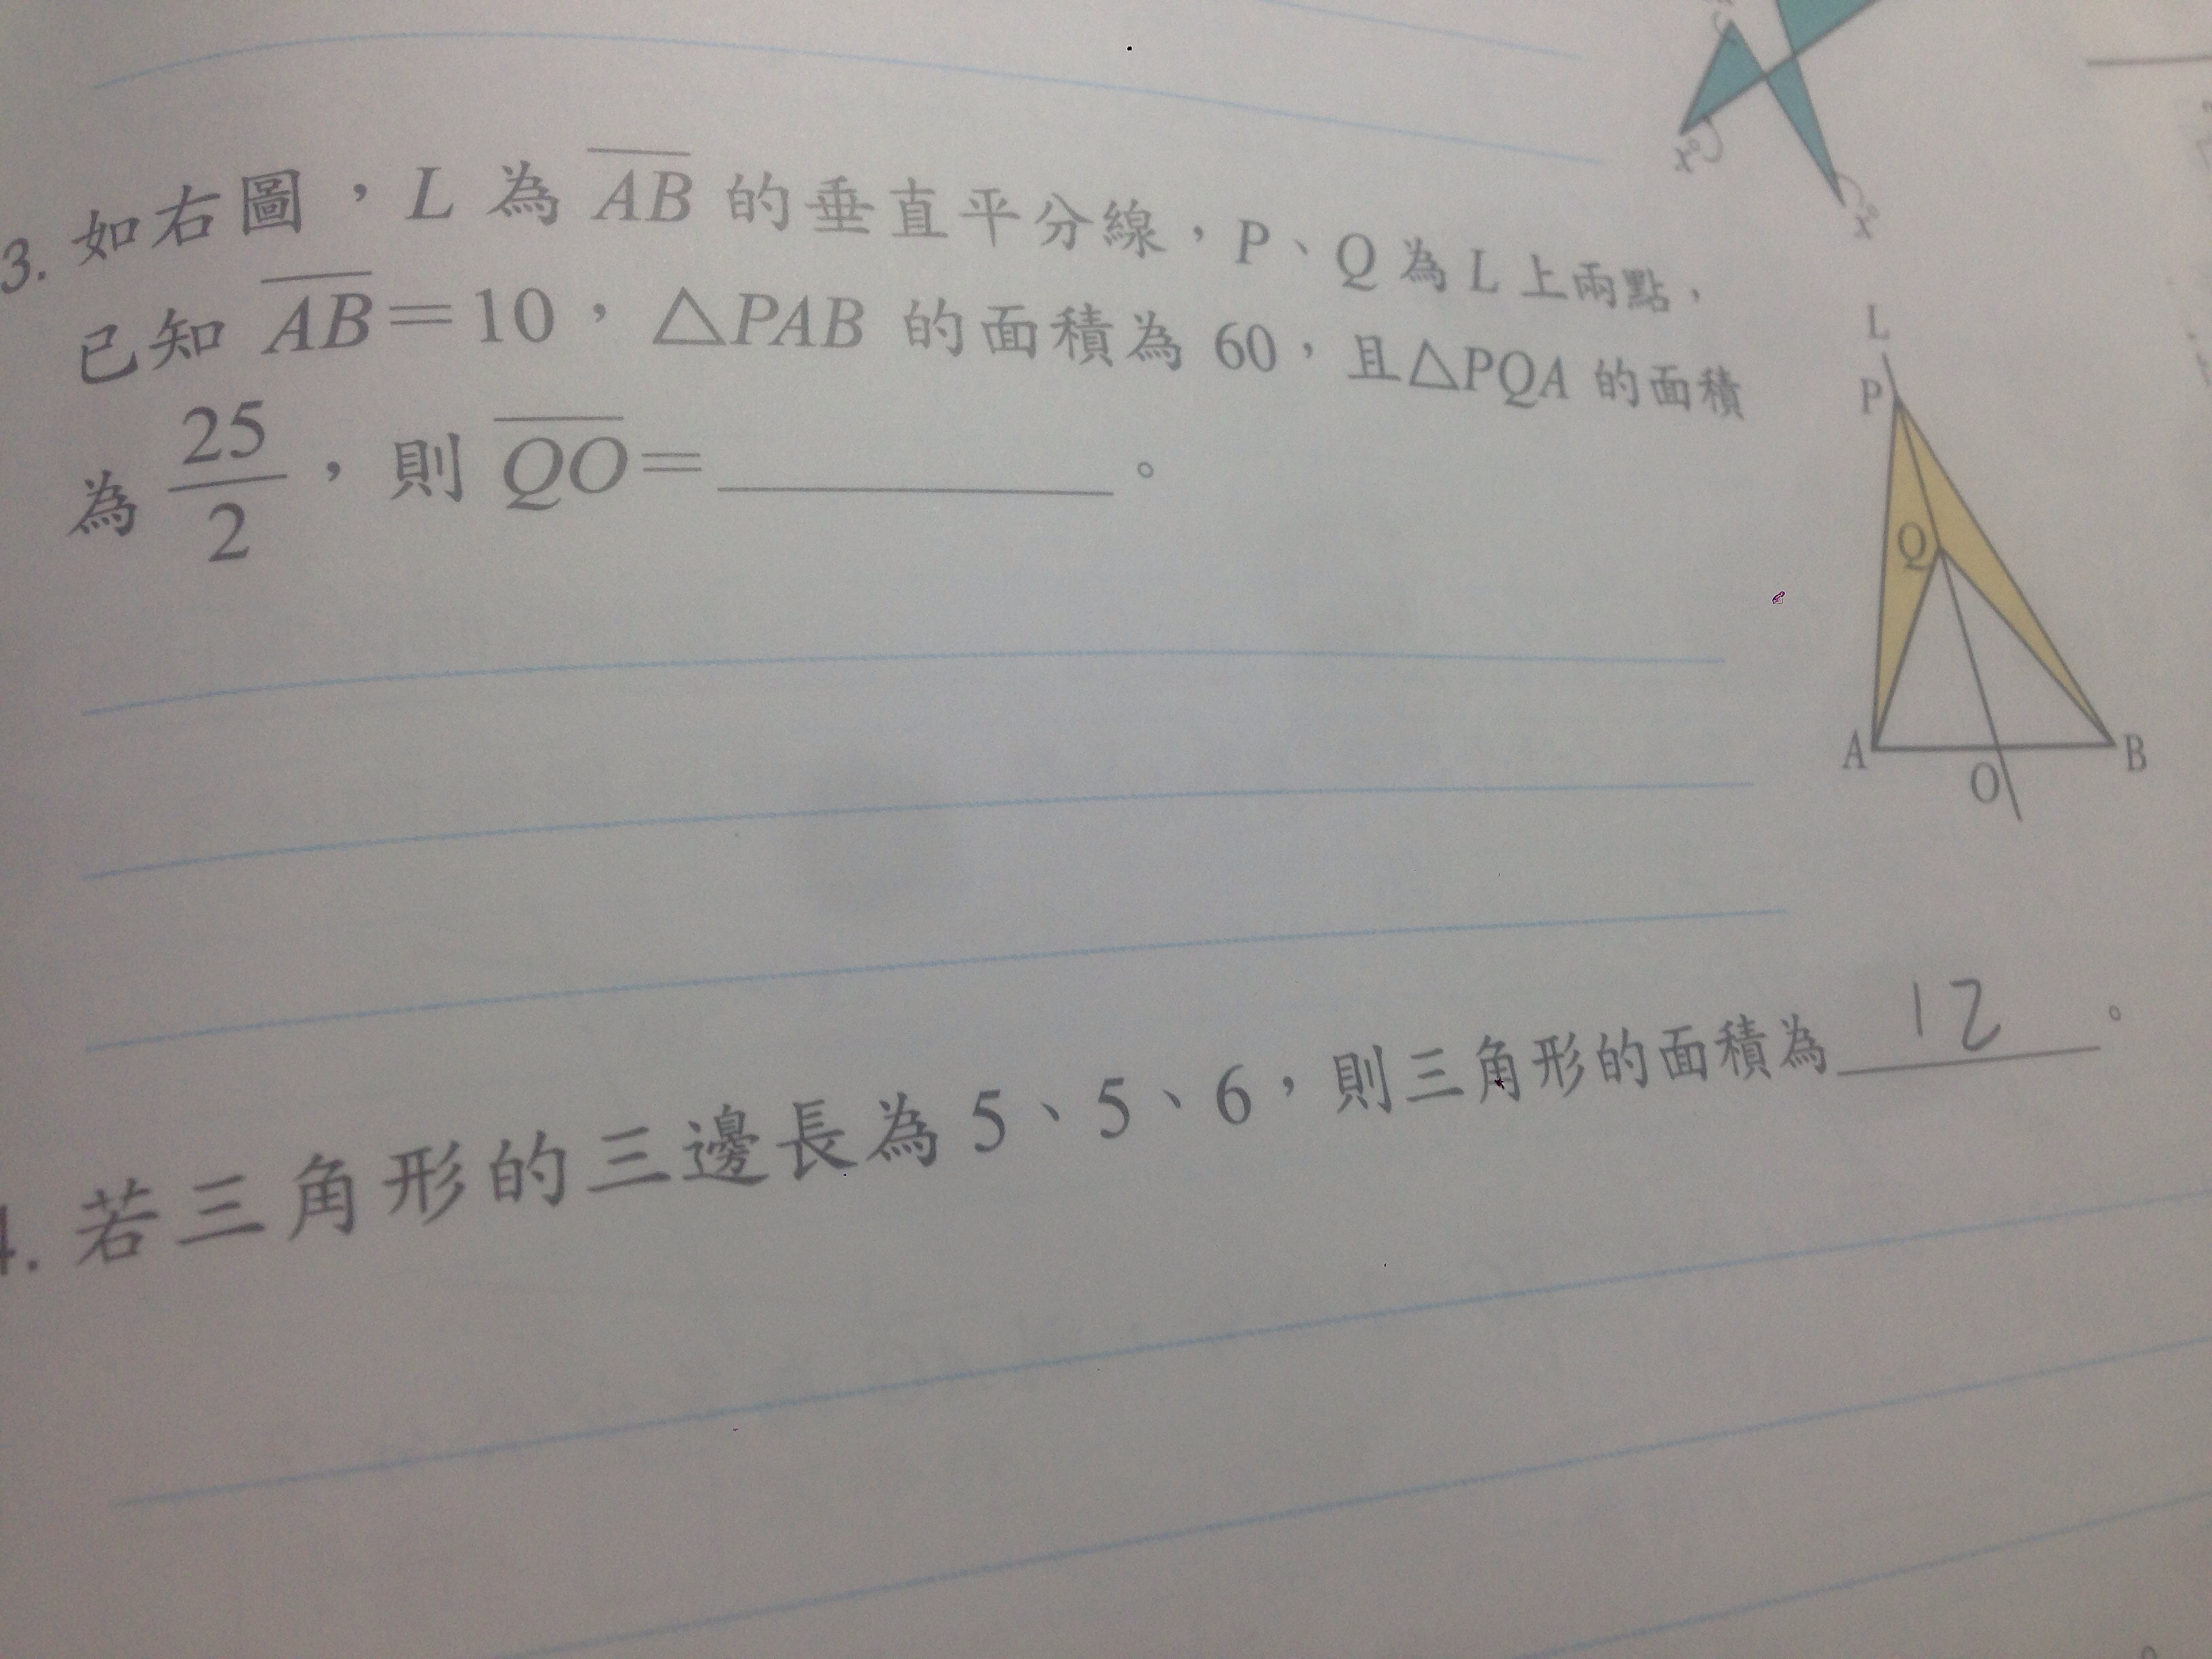 3. 如右圖，L 為 AB 的垂直平分線，P、Q 為 L 上兩點，
已知 AB＝10，△PAB 的面積為 60，且△PQA 的面積
為 25/2，則 QO＝________。
L
P
Q
A
B
O
x°
x°
4. 若三角形的三邊長為 5、5、6，則三角形的面積為 12 。